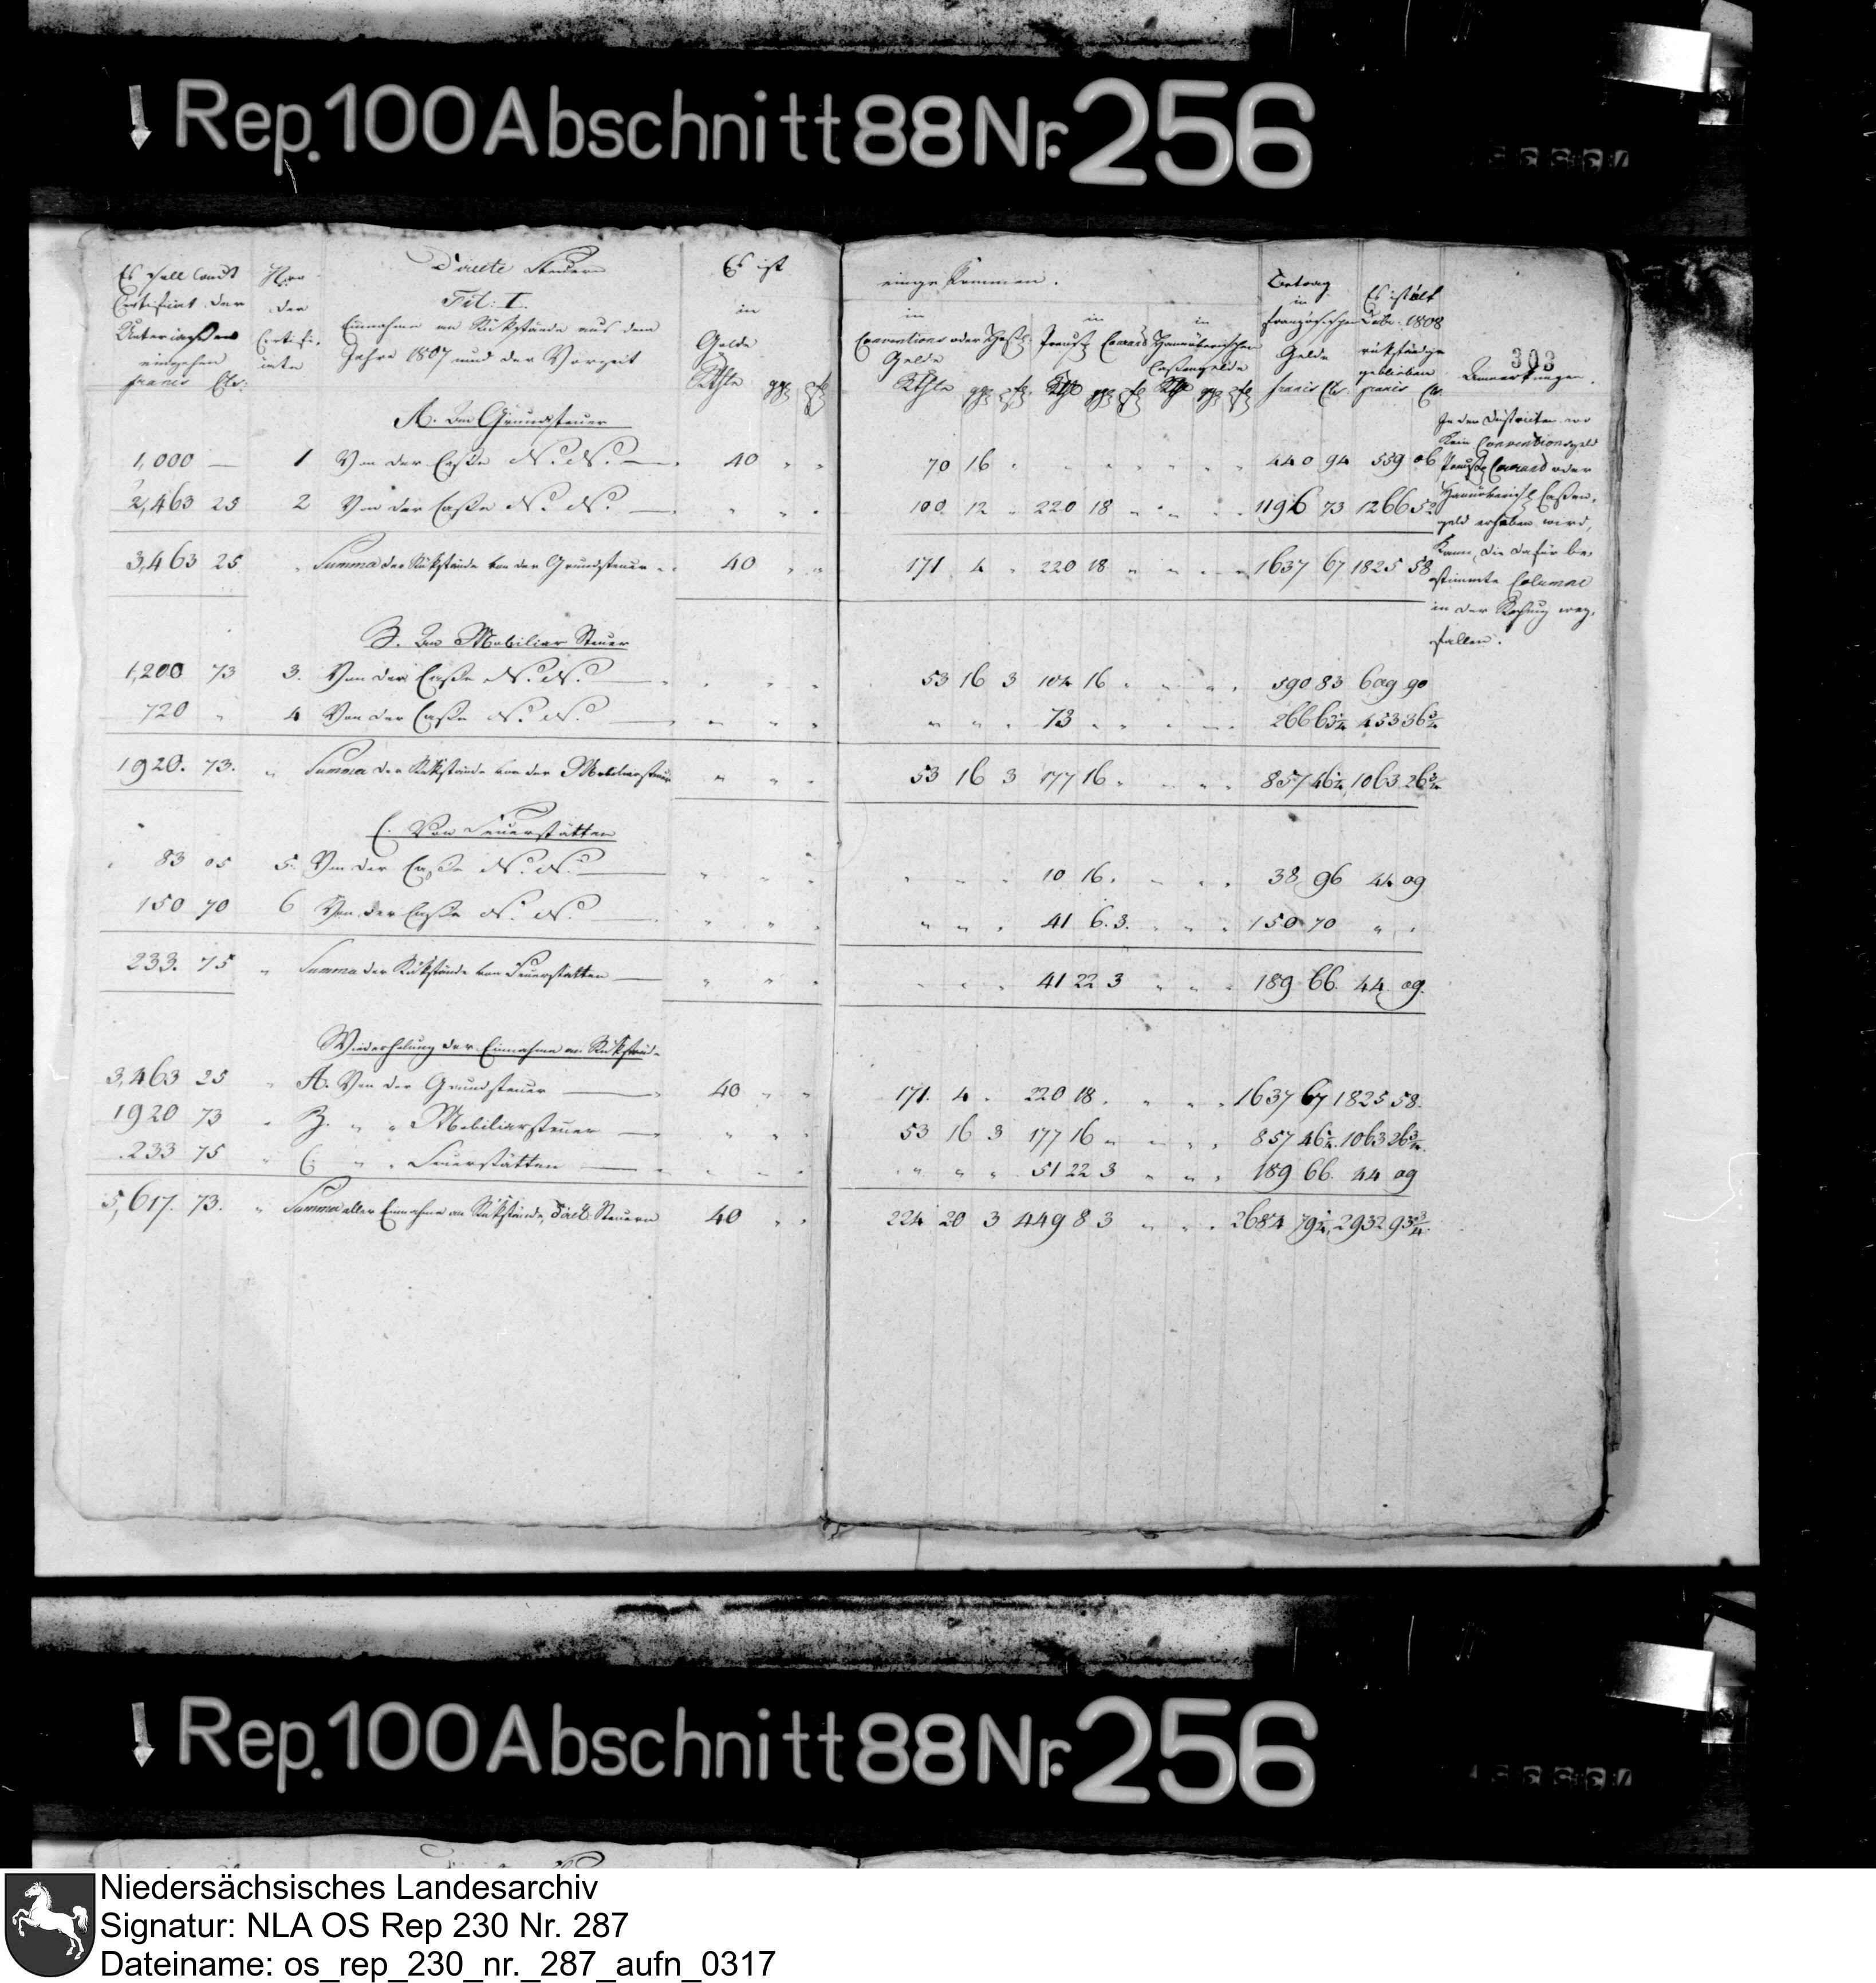 Rep. 100 Abschnitt 88 Nr. 256
303
Es soll laut Certificat der Unterinstanz eingehen
francs Cts:
Nro der Certificate
Directe Steuern
Tit: I.
Einnahme an Rükstände aus dem
Jahre 1807 und der Vorzeit
Es ist
in Golde
Rthlr ggr pf
eingekommen.
in Conventions oder Gelde
Rthlr ggr pf
in Preuß Courant
Rthl ggr pf
in Hannöverischen Caßengelde
Rthl ggr pf
Betrag in französischen Gelde
francs Cts.
Es ist ult Dcbr. 1808 rükständig geblieben
francs Cts.
Anmerkungen.
A. Von Grundsteuer
1,000 — 1 Von der Caße N. N. 40 " " 70 16 " " " " " " " 440 94 559 06
2,463 25 2 Von der Caße N. N. " " " 100 12 " 220 18 " " " " 1196 73 1266 52
3,463 25 " Summa der Rükstände von der Grundsteuer 40 " " 171 4 " 220 18 " " " " 1637 67 1825 58
In den Districten wo
kein Conventionsgeld
Preuß. Courant oder
Hannöverisch Caßen-
geld erhoben wird,
kann, die dafür be-
stimmte Columne
in der Rechnung weg-
fallen.
B. Von Mobiliar Steuer
1,200 73 3. Von der Caße N. N. " " " 53 16 3 104 16 " " " " 590 83 609 90
720 " 4 Von der Caße N. N. " " " " " " 73 " " " " " 266 63¼ 453 36¾
1920. 73. " Summa der Rükstände von der Mobiliarsteuer " " " 53 16 3 177 16 " " " " 857 46¼ 1063 26¾
C. Von Feuerstätten
83 05 5. Von der Caße N. N. " " " " " " 10 16 " " " " 38 96 44 09
150 70 6 Von der Caße N. N. " " " " " " 41 6. 3. " " " 150 70 " "
233. 75 " Summa der Rükstände von Feuerstatten " " " " " " 41 22 3 " " " 189 66. 44 09.
Wiederholung der Einnahme an Rükstände
3,463 25 " A. Von der Grundsteuer 40 " " 171. 4 " 220 18 " " " " 1637 67 1825 58.
1920 73 " B. " " Mobiliarsteuer " " " 53 16 3 177 16 " " " " 857 46¼ 1063 26¾
233 75 " C. " " Feuerstätten " " " " " " 51 22 3 " " " 189 66. 44 09
5,617. 73. " Summa aller Einnahme an Rükstände, Direct. Steuern 40 " " 224 20 3 449 8 3 " " " 2684 79¼ 2932 93¾
Rep. 100 Abschnitt 88 Nr. 256
Niedersächsisches Landesarchiv
Signatur: NLA OS Rep 230 Nr. 287
Dateiname: os_rep_230_nr._287_aufn_0317